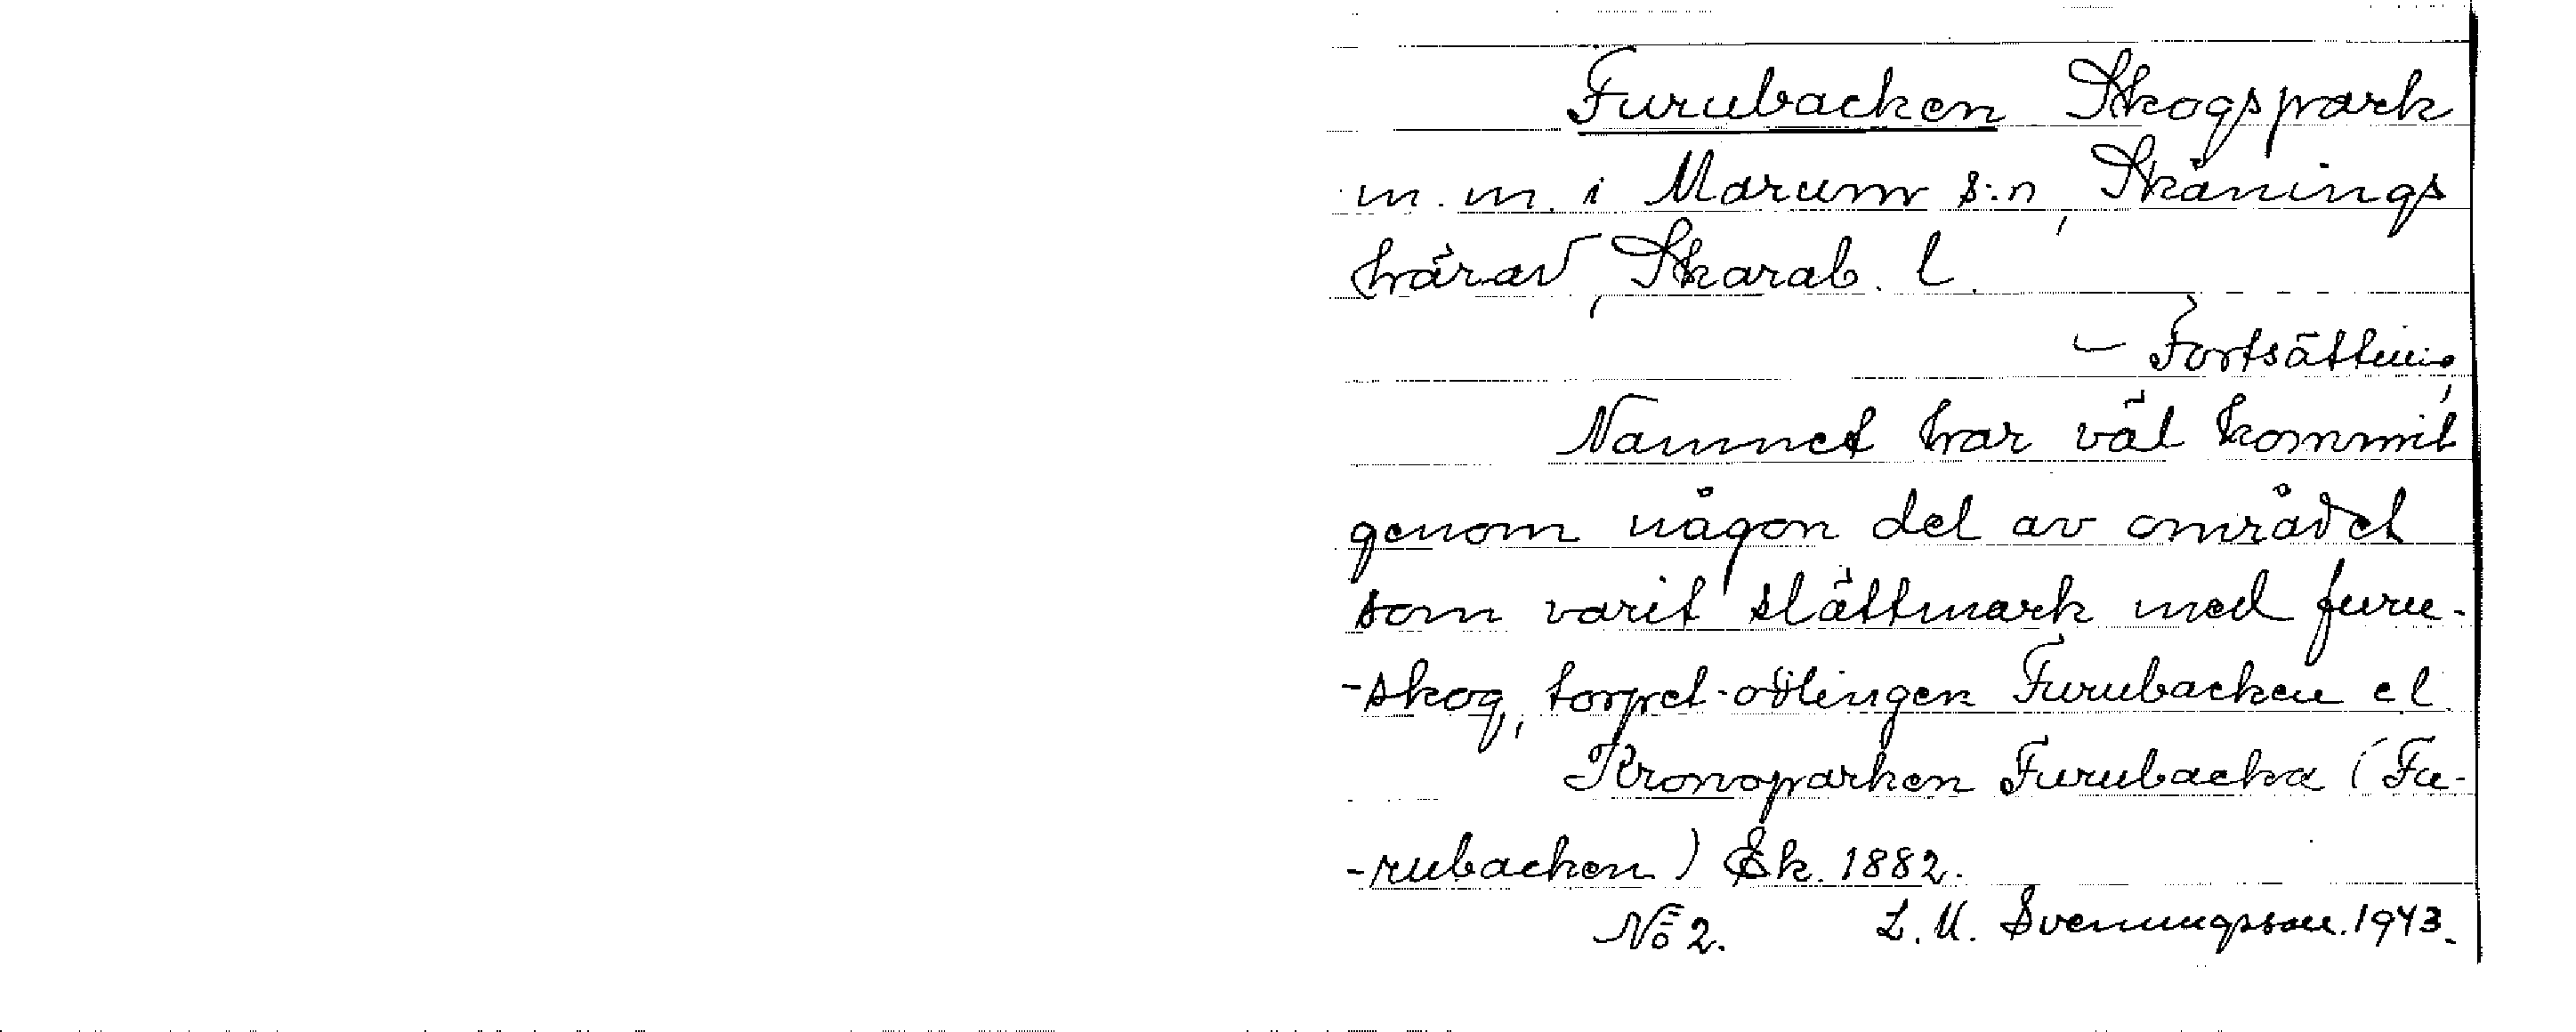 Furubacken Skogspark
m. m. i Marum s:n, Skånings
härad, Skarab. l.
- Fortsättning,
Namnet har väl kommit
genom någon del av området
som varit slättmark med furu-
-skog, torpet-odlingen Furubacken el.
Kronoparken Furubacka (Fu-
-rubacken) Ek. 1882.
No 2. L. U. Svenungsson. 1943.